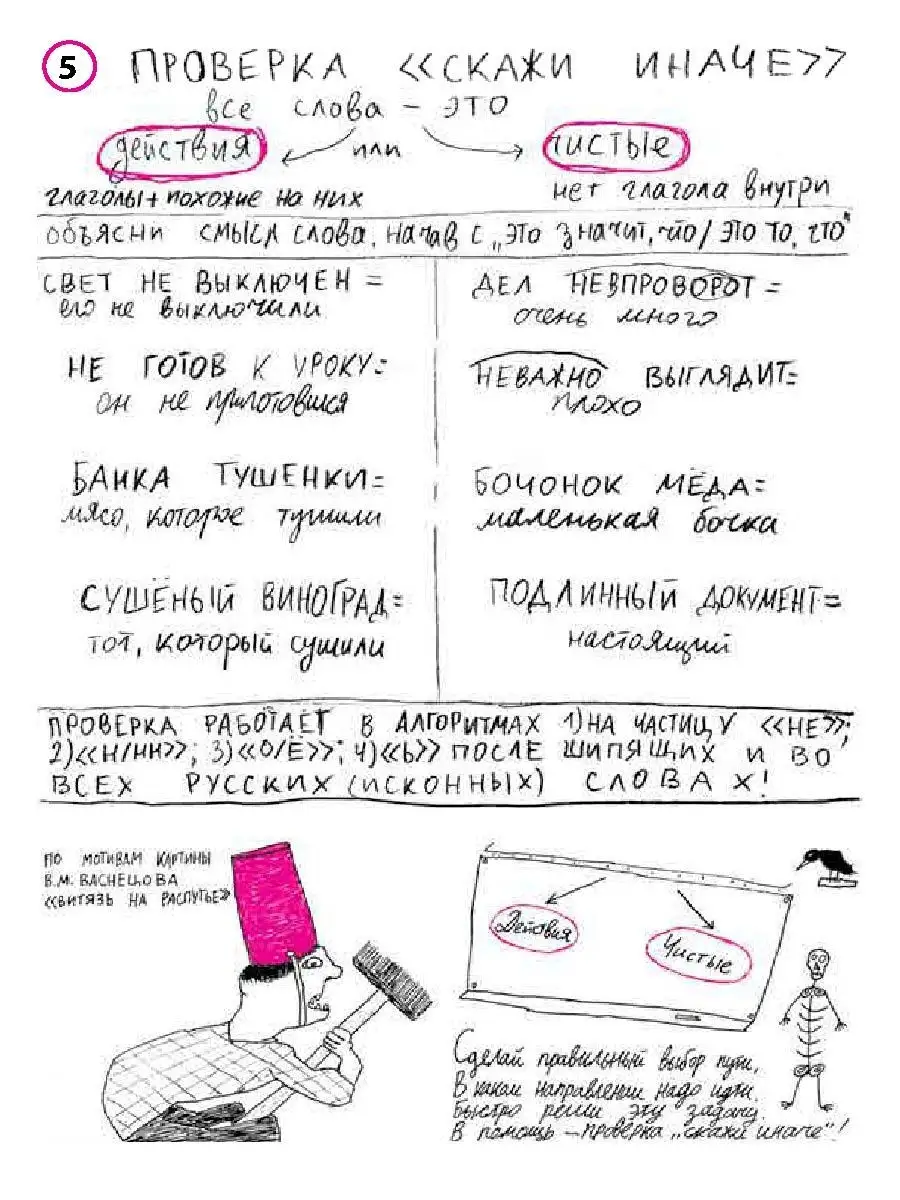 5 ПРОВЕРКА «СКАЖИ ИНАЧЕ»
все слова – это
действия или чистые
глаголы + похожие на них
нет глагола внутри
объясни смысл слова, начав с „это значит, что / это то, что"
СВЕТ НЕ ВЫКЛЮЧЕН =
его не выключили
НЕ ГОТОВ К УРОКУ=
он не приготовился
БАНКА ТУШЕНКИ=
мясо, которое тушили
СУШЁНЫЙ ВИНОГРАД=
тот, который сушили
ДЕЛ НЕВПРОВОРОТ =
очень много
НЕВАЖНО ВЫГЛЯДИТ=
плохо
БОЧОНОК МЁДА=
маленькая бочка
ПОДЛИННЫЙ ДОКУМЕНТ=
настоящий
ПРОВЕРКА РАБОТАЕТ В АЛГОРИТМАХ 1) НА ЧАСТИЦУ «НЕ»;
2) «Н/НН»; 3) «О/Ё»; 4) «Ь» ПОСЛЕ ШИПЯЩИХ И ВО
ВСЕХ РУССКИХ (ИСКОННЫХ) СЛОВАХ!
ПО МОТИВАМ КАРТИНЫ
В.М. ВАСНЕЦОВА
«ВИТЯЗЬ НА РАСПУТЬЕ»
Действия
Чистые
Сделай правильный выбор пути,
В каком направлении надо идти.
Быстро реши эту задачу.
В помощь – проверка „скажи иначе"!